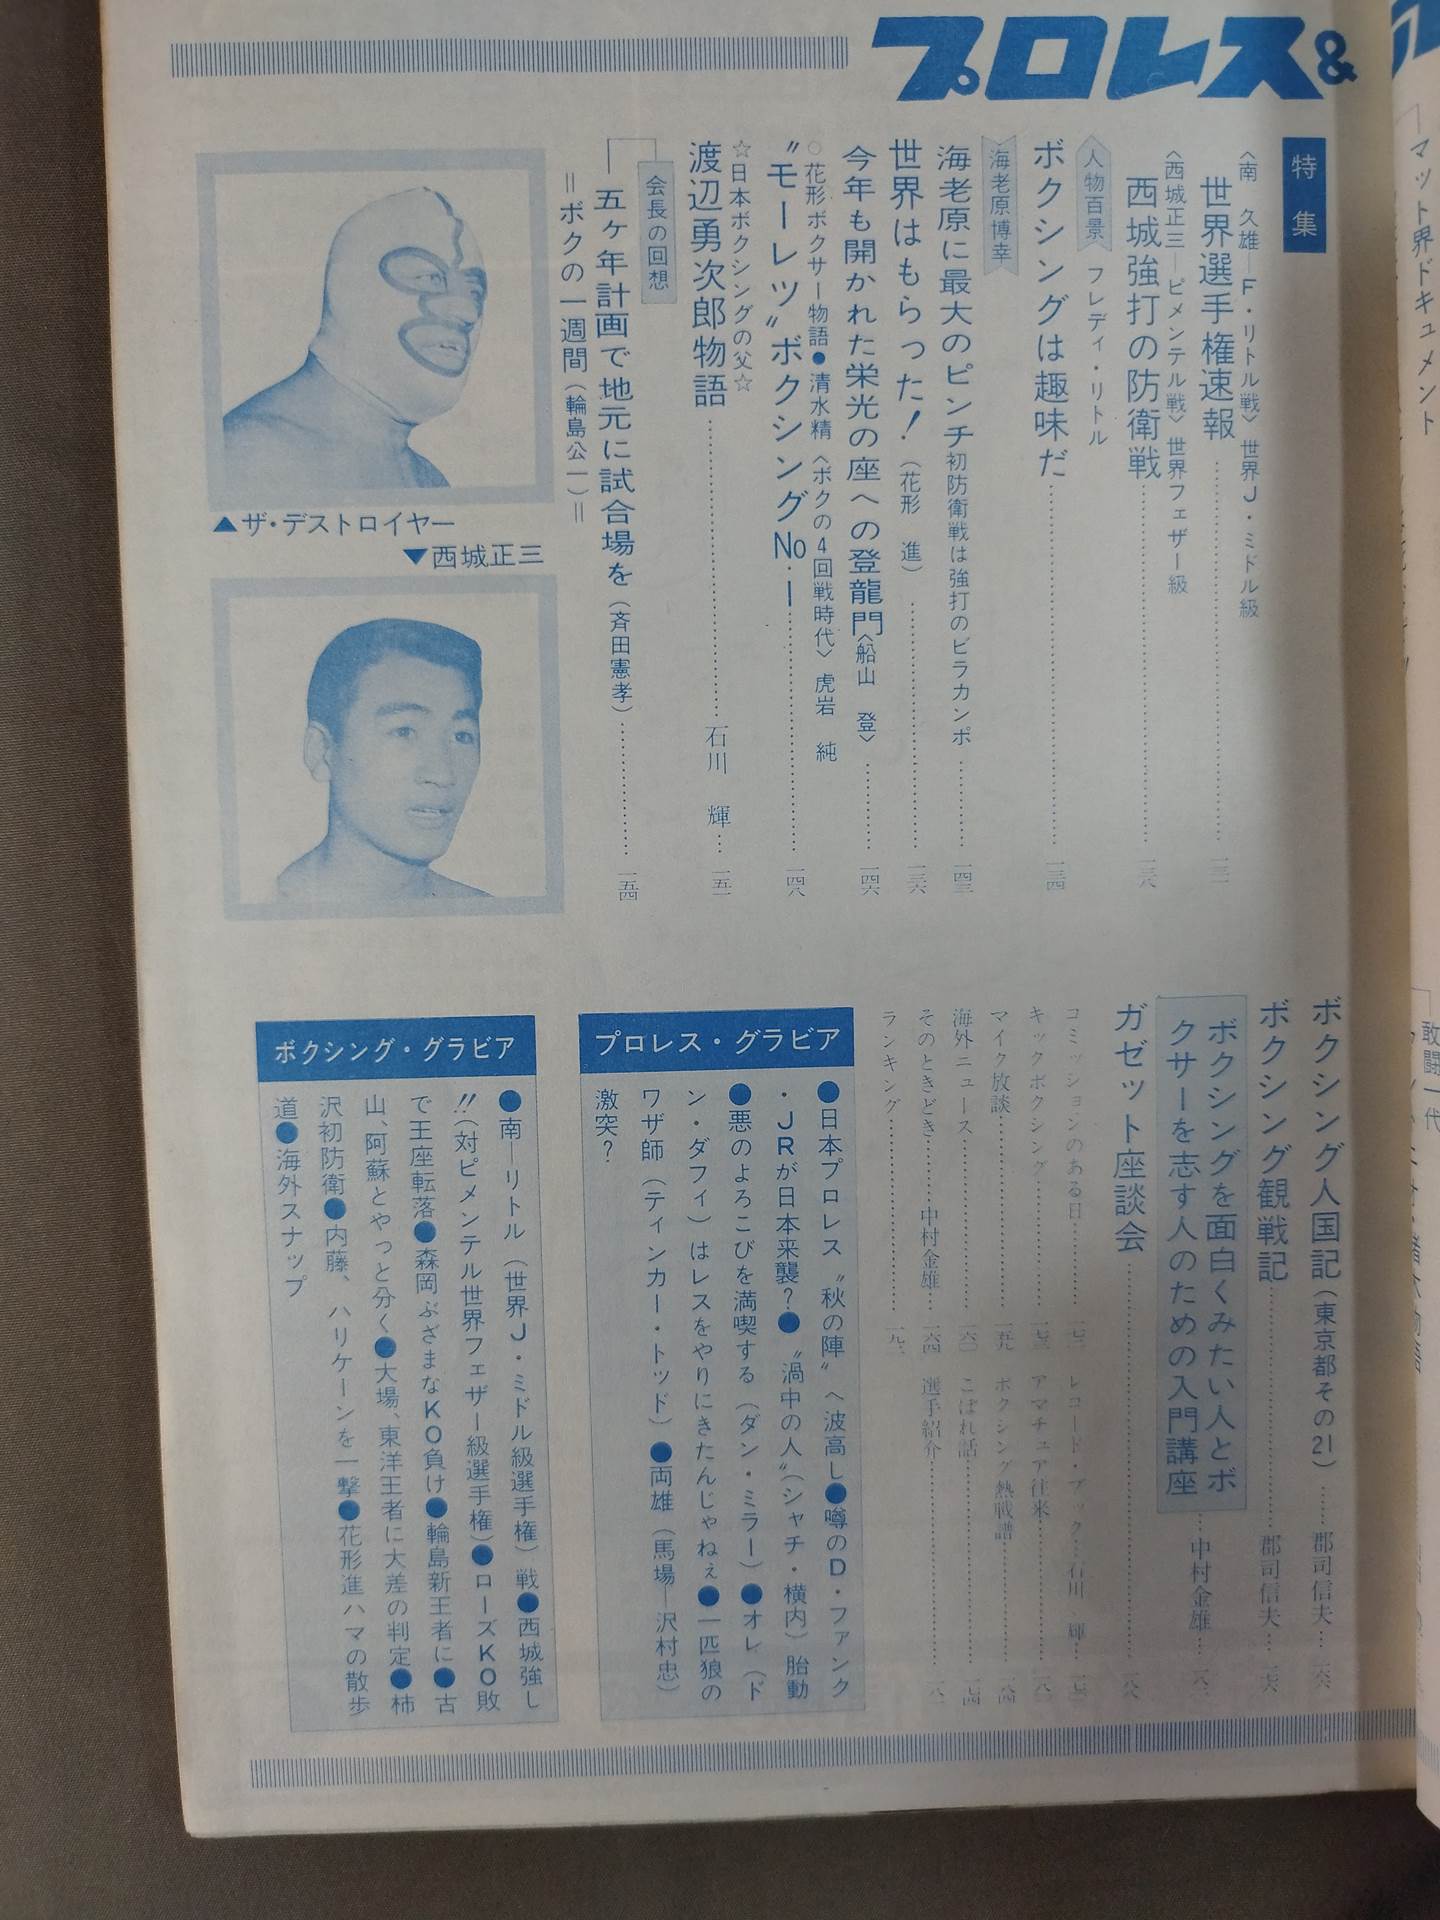 プロレス&
特集
〈南　久雄―F・リトル戦〉世界J・ミドル級
世界選手権速報
〈西城正三―ピメンテル戦〉世界フェザー級
西城強打の防衛戦
人物百景
フレディ・リトル
ボクシングは趣味だ
海老原博幸
海老原に最大のピンチ 初防衛戦は強打のビラカンポ
世界はもらった！（花形　進）
今年も開かれた栄光の座への登龍門〈船山　登〉
○花形ボクサー物語●清水精〈ボクの4回戦時代〉虎岩　純
“モーレツ”ボクシングNo.1
☆日本ボクシングの父☆
渡辺勇次郎物語……石川　輝
会長の回想
五ヶ年計画で地元に試合場を（斉田憲孝）
＝ボクの一週間（輪島公一）＝
一三四
一三八
一四三
一三六
一四六
一四八
一五四
▲ザ・デストロイヤー
▼西城正三
ボクシング人国記（東京都その21）……郡司信夫
ボクシング観戦記……郡司信夫
ボクシングを面白くみたい人とボ
クサーを志す人のための入門講座……中村金雄
ガゼット座談会
コミッションのある日
キックボクシング
マイク放談
海外ニュース
そのときどき……中村金雄
ランキング
レコード・ブック……石川　輝
アマチュア往来
ボクシング熱戦譜
こぼれ話
選手紹介
プロレス・グラビア
●日本プロレス“秋の陣”へ波高し●噂のD・ファンク
・JRが日本来襲？●“渦中の人”（シャチ・横内）胎動
●悪のよろこびを満喫する（ダン・ミラー）●オレ（ド
ン・ダフィ）はレスをやりにきたんじゃねぇ●一匹狼の
ワザ師（ティンカー・トッド）●両雄（馬場―沢村忠）
激突？
ボクシング・グラビア
●南―リトル（世界J・ミドル級選手権）戦●西城強し
!!（対ピメンテル世界フェザー級選手権）●ローズKO敗
で王座転落●森岡ぶざまなKO負け●輪島新王者に●古
山、阿蘇とやっと分く●大場、東洋王者に大差の判定●柿
沢初防衛●内藤、ハリケーンを一撃●花形進ハマの散歩
道●海外スナップ
マット界ドキュメント
敢闘一代